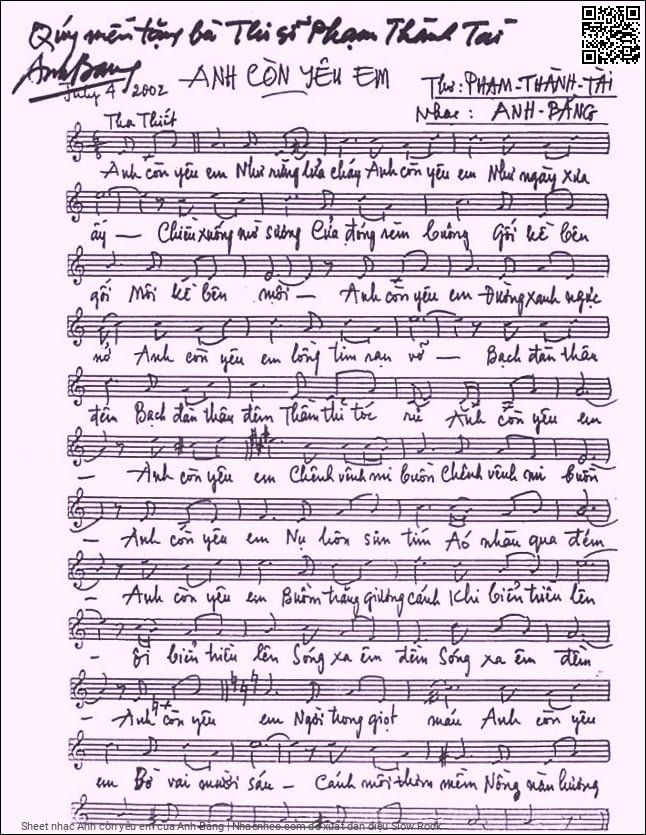 Quý mến tặng bà Thi sĩ Phạm Thành Tài
Anh Bằng
July 4 2002
ANH CÒN YÊU EM
Thơ: PHẠM-THÀNH-TÀI
Nhạc: ANH-BẰNG
Tha Thiết
Anh còn yêu em Như rừng lửa cháy Anh còn yêu em Như ngày xưa
ấy — Chiều xuống mờ sương Cửa đóng rèm buông Gối kề bên
gối Môi kề bên môi — Anh còn yêu em Đường xanh ngực
nở Anh còn yêu em lồng tim rạn vỡ — Bạch đàn thâu
đêm Bạch đàn thâu đêm Thầm thì tóc rũ Anh còn yêu em
— Anh còn yêu em Chênh vênh mi buồn Chênh vênh mi buồn
— Anh còn yêu em Nụ hôn sim tím Áo nhàu qua đêm
— Anh còn yêu em Buồm trăng giương cánh Khi biển triều lên
— Ôi biển triều lên Sóng xa êm đềm Sóng xa êm đềm
— Anh còn yêu em Ngời trong giọt máu Anh còn yêu
em Bờ vai mười sáu — Cánh môi thơm mềm Nồng nàn hương
Sheet nhạc Anh còn yêu em của Anh Bằng | Nhacnheo.com đề xuất đàn điệu Slow Rock